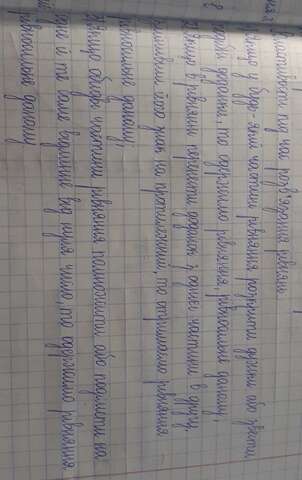 Властивості під час розв'язування рівнянь
Якщо у будь-якій частині рівняння розкрити дужки або звести
подібні доданки, то одержимо рівняння, рівносильне даному;
Якщо в рівнянні перенести доданок з однієї частини в другу,
змінивши його знак на протилежний, то отримаємо рівняння
рівносильне даному;
Якщо обидві частини рівняння помножити або поділити на
одне й те саме відмінне від нуля число, то одержимо рівняння
рівносильне даному